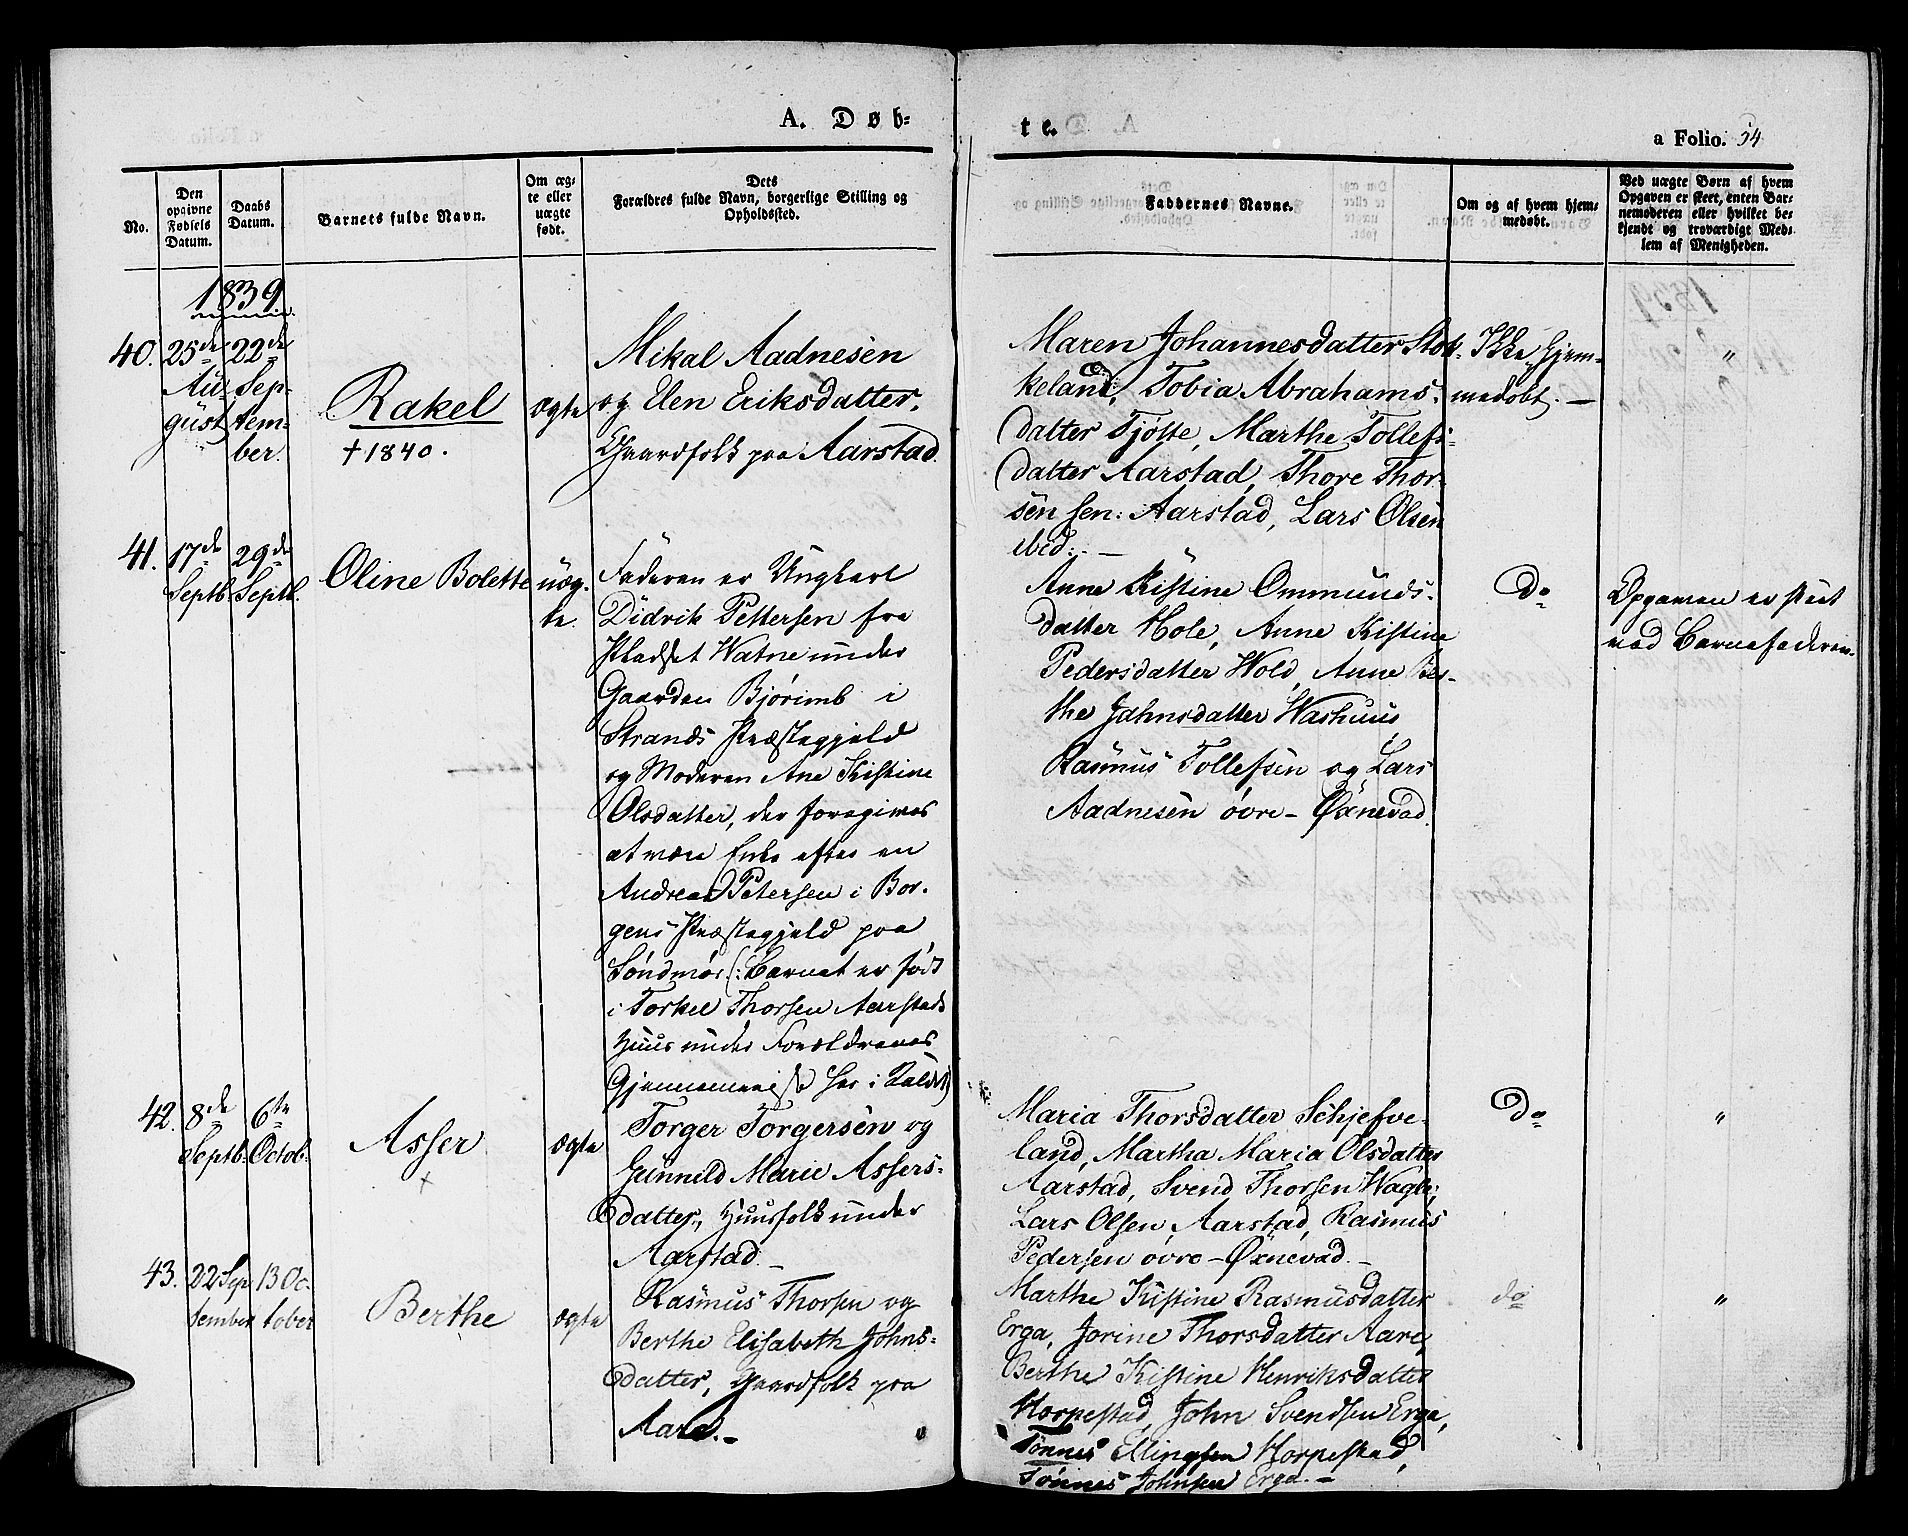 A. Døb-
te.
a Folio. 54
No.
Den
opgivne
Fødsels
Datum.
Daabs
Datum.
Barnets fulde Navn.
Om æg-
te eller
uægte
født.
Dets
Forældres fulde Navn, borgerlige Stilling og
Opholdssted.
Faddernes Navne.
Om og af hvem hjem-
medøbt.
Ved uægte Børn af hvem
Opgaven er skeet, enten Bar-
nemoderen eller hvilket be-
kjendt og troværdigt Med-
lem af Menigheden.
1839
40.
25de
Au-
gust
22de
Sep-
tem-
ber.
Rakel
† 1840.
ægte
Mikal Aadnesen
og Elen Eriksdatter,
Gaardfolk paa Aarstad.
Maren Johannesdatter Stok-
keland, Tobia Abrahams-
datter Tjøtte, Marthe Tollefs-
datter Aarstad, Thore Thor-
sen sen: Aarstad, Lars Olsen
ibid: –
Ikke hjem-
medøbt. –
"
41.
17de
Septb.
29de
Septb.
Oline Bolette
uæg-
te.
Faderen er Ungkarl
Didrik Pettersen fra
Pladset Watne under
Gaarden Bjørimb i
Strands Præstegjeld
og Moderen Ane Kistine
Olsdatter, der foregives
at være Enke efter en
Andreas Petersen i Bor-
gens Præstegjeld paa
Søndmør (: Barnet er født
i Torkel Thorsen Aarstads
Huus under Forældrenes
Gjennemreise her i Kaldet)
Anne Kistine Ommunds-
datter Hole, Anne Kistine
Pedersdatter Wold, Anne Ber-
the Jahnsdatter Washuus
Rasmus Tollefsen og Lars
Aadnesen øvre-Øxnevad.
Do
Opgaven er skeet
ved Barnefaderen.
42.
8de
Septb.
6te
Octob.
Asser
+
ægte
Torger Torgersen og
Gunnild Marie Assers-
datter, Huusfolk under
Aarstad. –
Maria Thorsdatter Schjefve-
land, Martha Maria Olsdatter
Aarstad, Svend Thorsen Wagle,
Lars Olsen Aarstad, Rasmus
Pedersen øvre-Øxnevad. –
Do
"
43.
22 Sep
tember
13 Oc-
tober
Berthe
ægte
Rasmus Thorsen og
Berthe Elisabeth Johns-
datter, Gaardfolk paa
Aare. –
Marthe Kistine Rasmusdatter
Erga, Jorine Thorsdatter Aare,
Berthe Kistine Henriksdatter
Horpestad, John Svendsen Erga,
Tønnes Ellingsen Horpestad,
Tønnes Johnsen Erga. –
do
"